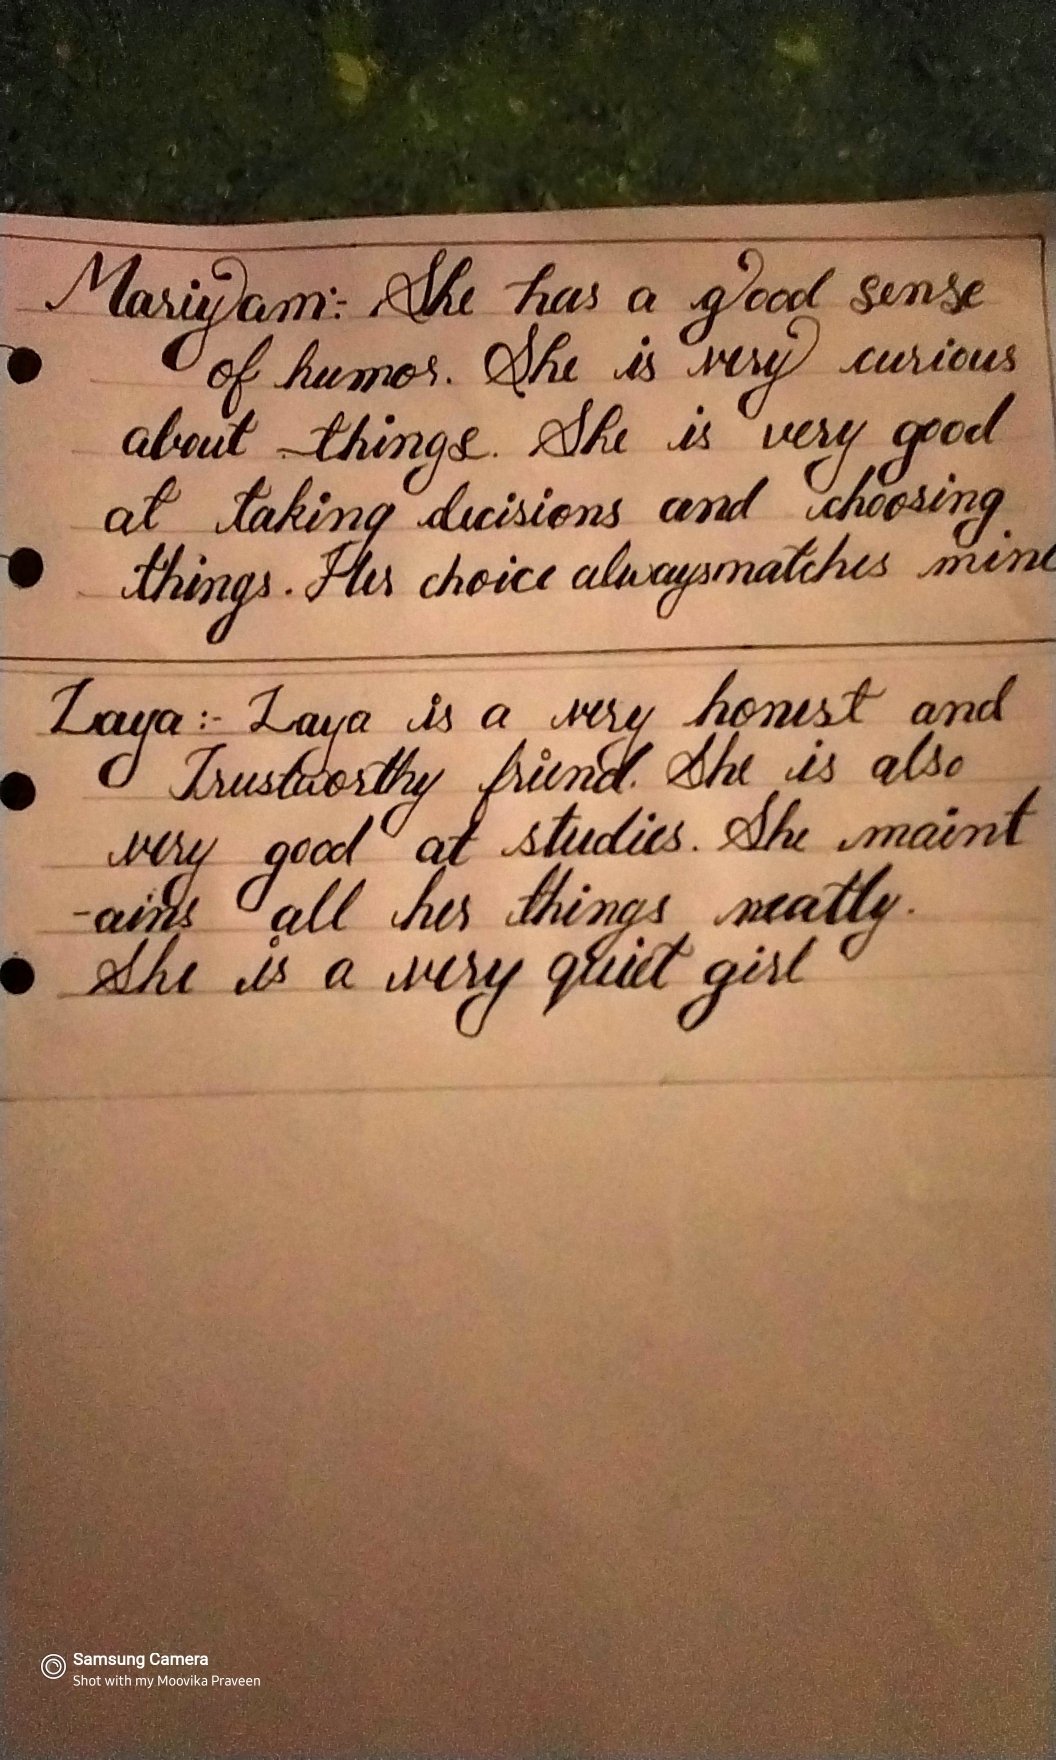 Mariyam:- She has a good sense
of humor. She is very curious
about things. She is very good
at taking decisions and choosing
things. Her choice always matches mine
Laya:- Laya is a very honest and
Trustworthy friend. She is also
very good at studies. She maint
-ains all her things neatly.
She is a very quiet girl
Samsung Camera
Shot with my Moovika Praveen